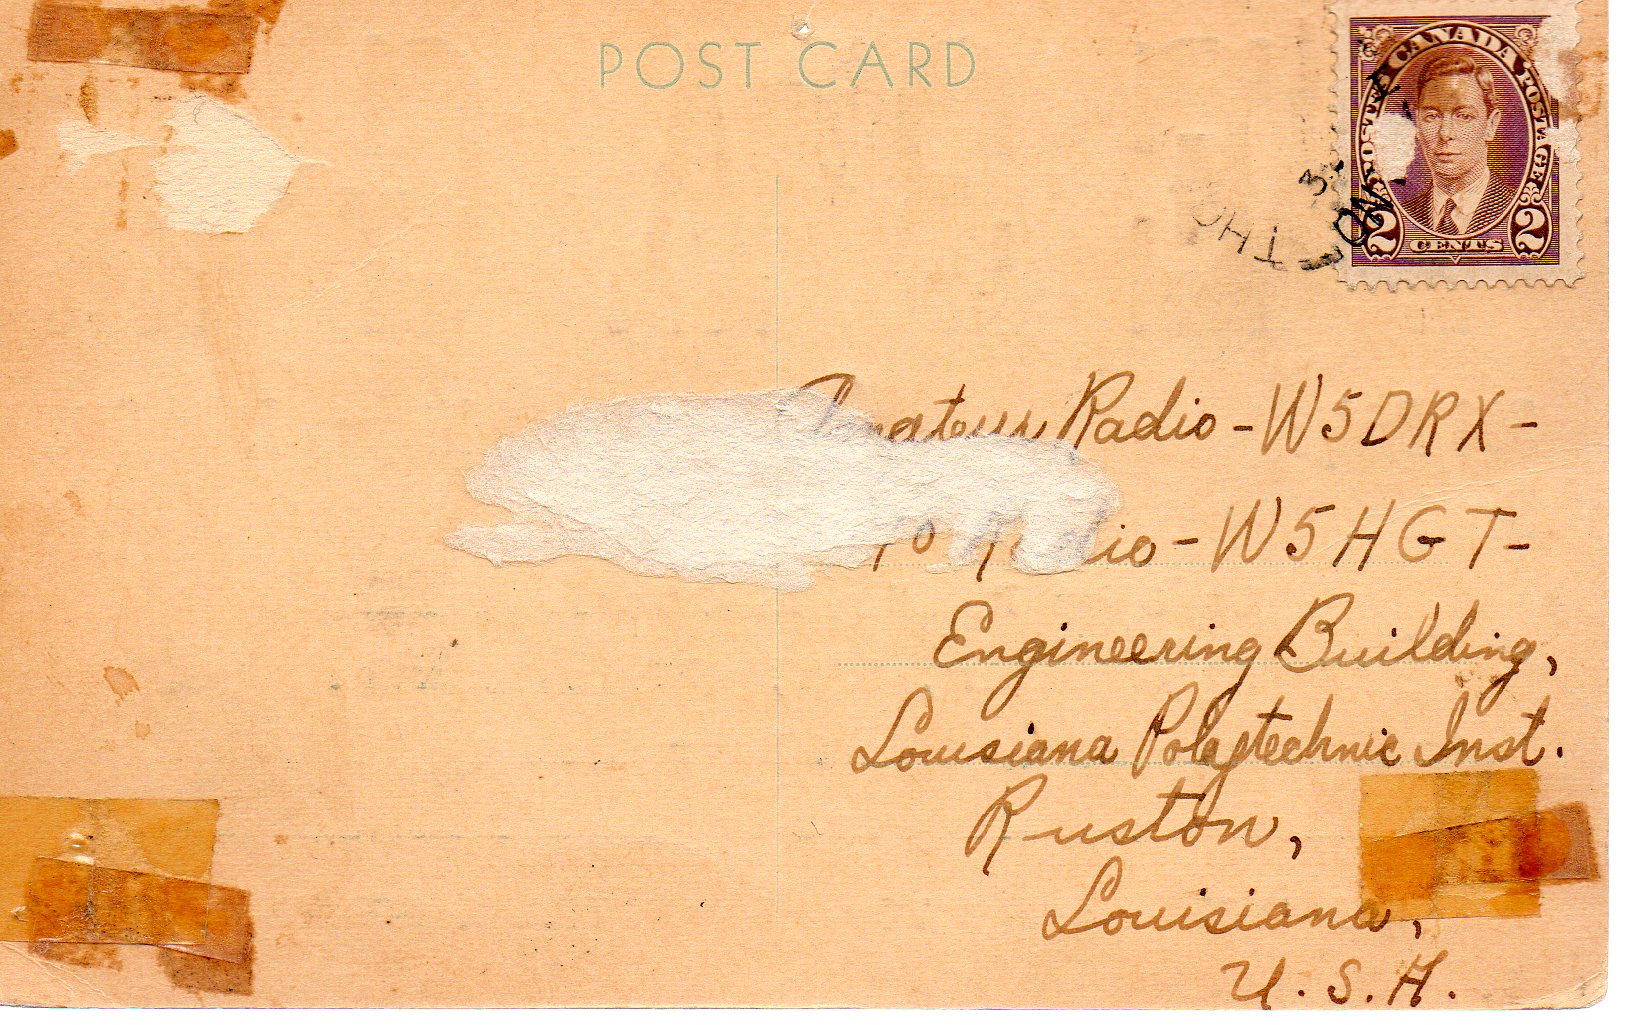 POST CARD
CANADA
POSTES POSTAGE
2 CENTS 2
Amateur Radio - W5DRX -
Radio - W5HGT -
Engineering Building,
Louisiana Polaytechnic Inst.
Ruston,
Louisiana,
U.S.A.